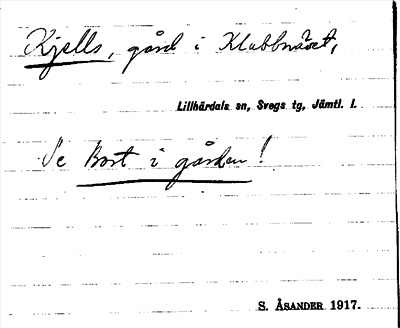 Kjells, gård i Klubbnäset,
Lillhärdals sn, Svegs tg, Jämtl. l.
Se Bort i gården!
S. ÅSANDER 1917.